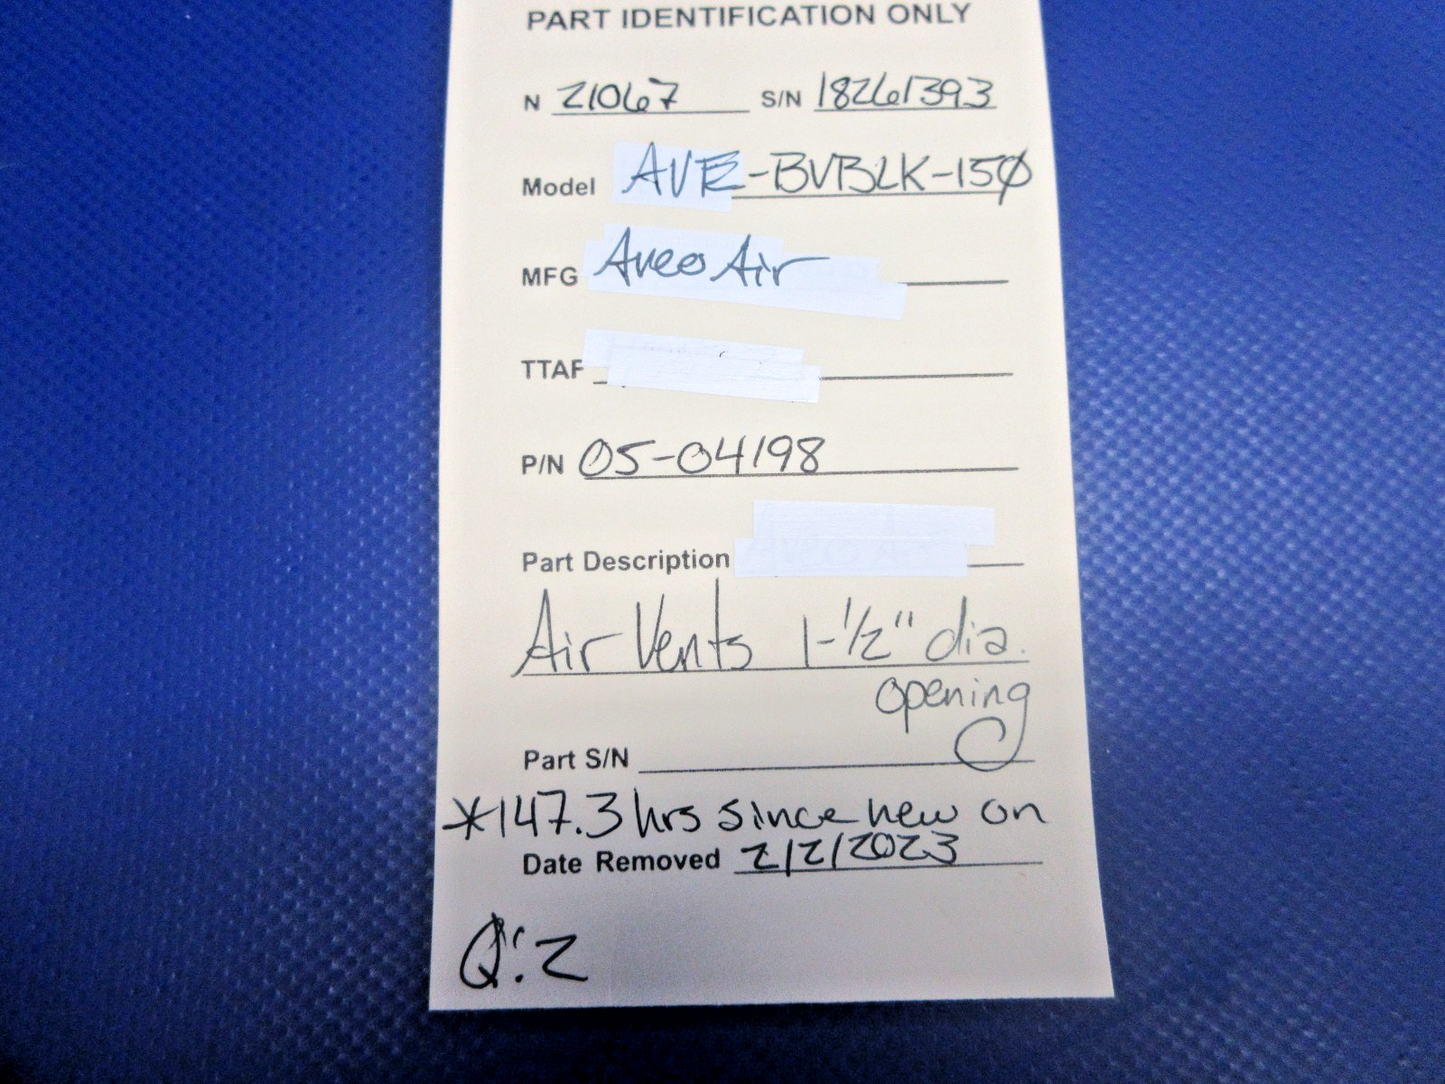 PART IDENTIFICATION ONLY
N 21067 S/N 18261393
Model AVE-BVBLK-150
MFG Aveo Air
TTAF
P/N 05-04198
Part Description
Air Vents 1-1/2" dia.
opening
Part S/N
*147.3 hrs since new on
Date Removed 2/2/2023
Q:2